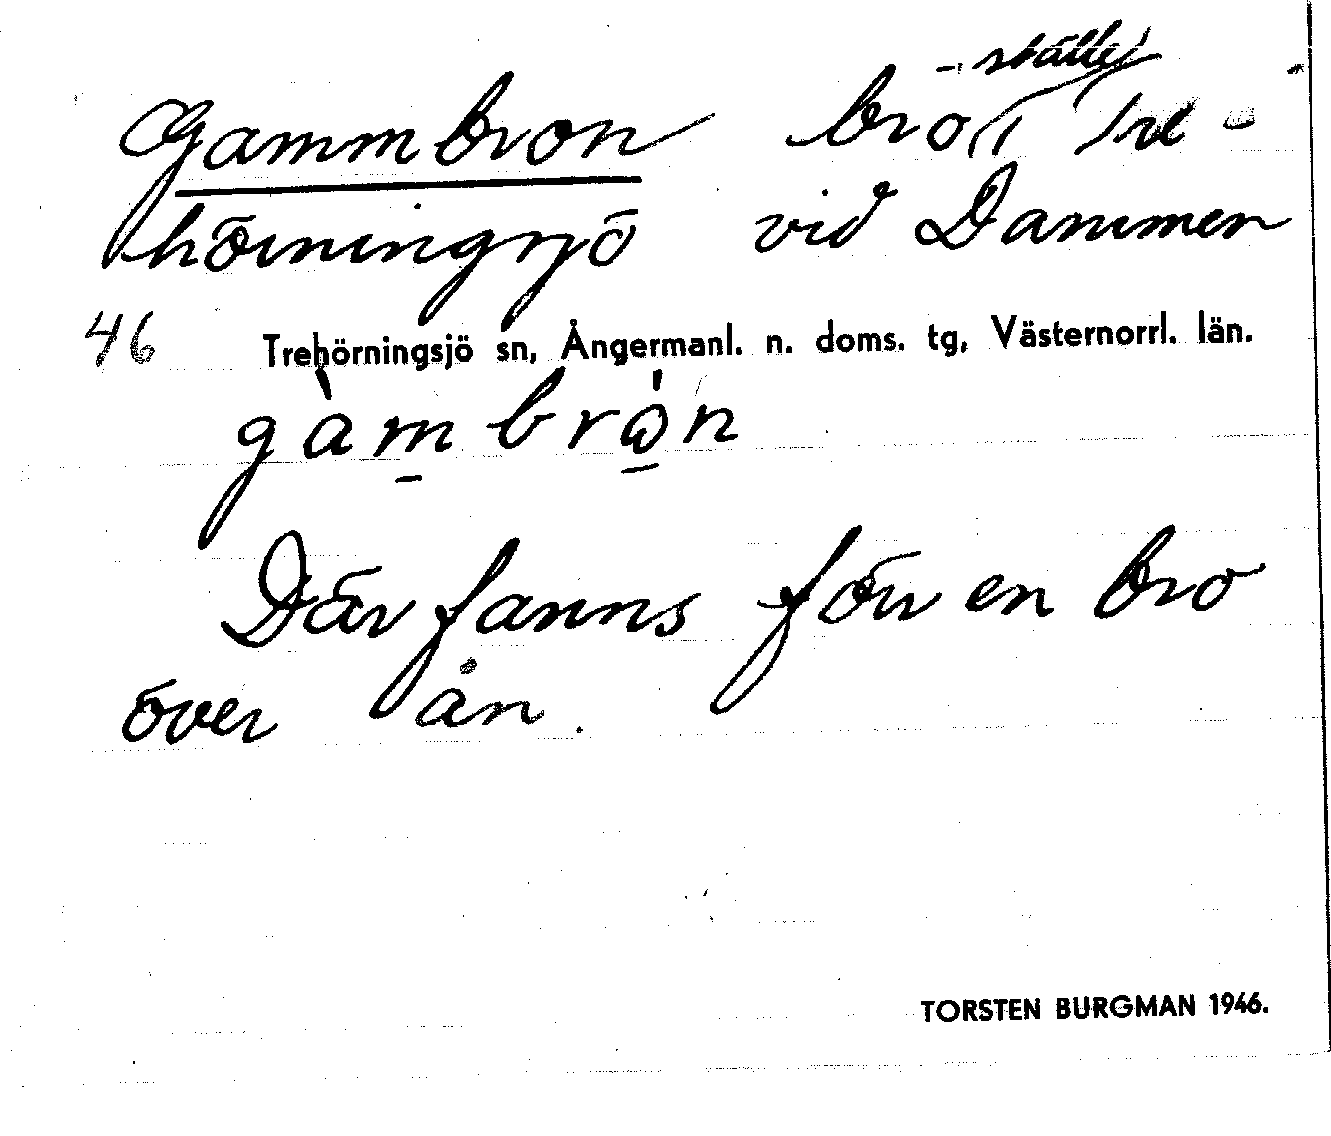 -ställe
Gammbron bro Tre-
hörningsjö vid Dammen
46 Trehörningsjö sn, Ångermanl. n. doms. tg, Västernorrl. län.
gàm̠brὼ̠n
Där fanns förr en bro
över ån.
TORSTEN BURGMAN 1946.